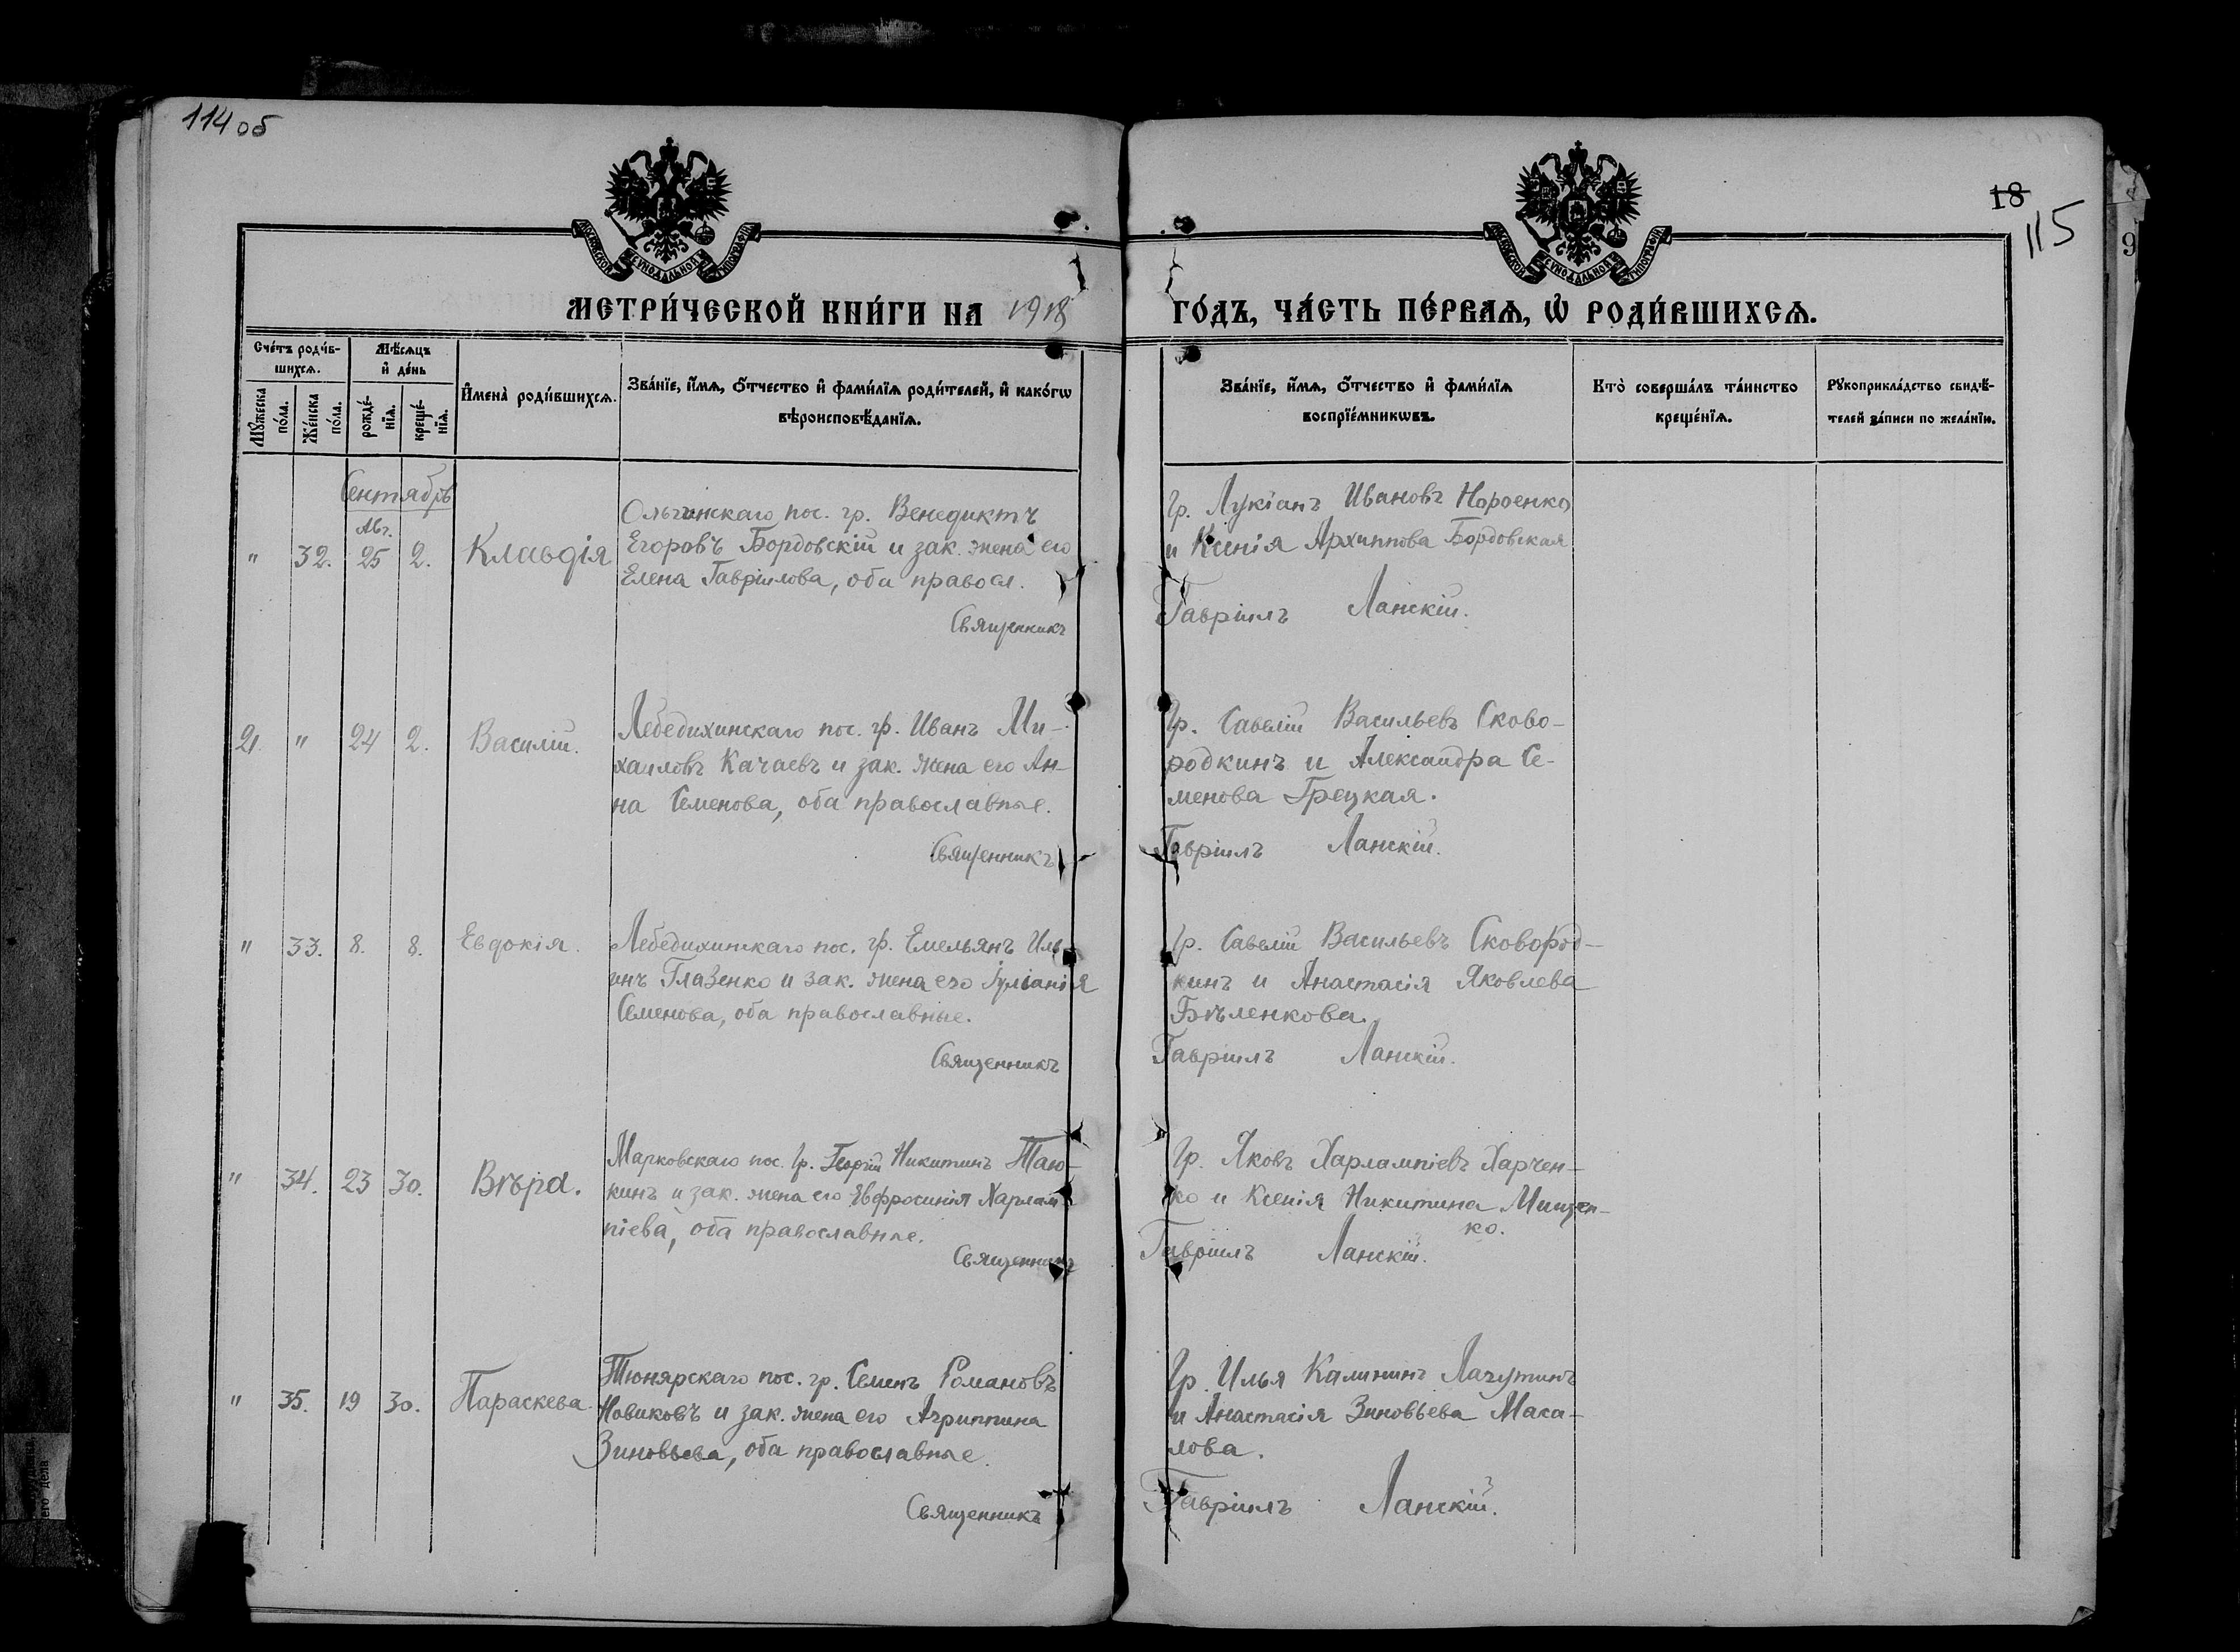 114 об
18
115
9
МОСКОВСКОЙ СѴНОДАЛЬНОЙ ТИПОГРАФІИ
МОСКОВСКОЙ СѴНОДАЛЬНОЙ ТИПОГРАФІИ
МЕТРИ́ЧЕСКОЙ КНИ́ГИ НА 1918 ГО́ДЪ, ЧА́СТЬ ПЕ́РВАѦ, Ѡ҆ РОДИ́ВШИХСѦ.
Сче́тъ роди́в-
шихсѧ.
Мꙋ́жеска по́ла.
Же́нска по́ла.
Мѣ́сѧцъ
и҆ де́нь
рожде́-
нїѧ.
креще́-
нїѧ.
И҆мена̀ роди́вшихсѧ.
Зва́нїе, и҆́мѧ, ѻ҆́тчество и҆ фами́лїѧ роди́телей, и҆ како́гѡ
вѣроисповѣ́данїѧ.
Зва́нїе, и҆́мѧ, ѻ҆́тчество и҆ фами́лїѧ
воспрїе́мникѡвъ.
Кто̀ соверша́лъ та́инство
креще́нїѧ.
Рꙋкоприкла́дство свидѣ́-
телей за́писи по жела́нїю.
Сентябрь
Авг.
" 32. 25 2. Клавдія
Ольгинскаго пос. гр. Венедиктъ
Егоровъ Бордовскій и зак. жена его
Елена Гавріилова, оба правосл.
Священникъ
Гр. Лукіанъ Ивановъ
и Ксенія Архиппова Бордовская
Гавріилъ Ланскій.
21. " 24 2. Василій.
Лебедихинскаго пос. гр. Иванъ Ми-
хаиловъ Качаевъ и зак. жена его Ан-
на Семенова, оба православные.
Священникъ
Гр. Савелій Васильевъ Сково-
родкинъ и Александра Се-
менова Грецкая.
Гавріилъ Ланскій.
" 33. 8. 8. Евдокія.
Лебедихинскаго пос. гр. Емельянъ Иль
инъ Глазенко и зак. жена его Іуліанія
Семенова, оба православные.
Священникъ
Гр. Савелій Васильевъ Сковород-
кинъ и Анастасія Яковлева
Бѣленкова.
Гавріилъ Ланскій.
" 34. 23 30. Вѣра.
Марковскаго пос. гр. Георгій Никитинъ
кинъ и зак. жена его Евфросинія Харлам
піева, оба православные.
Священникъ
Гр. Яковъ Харлампіевъ Харчен-
ко и Ксенія Никитина Мищен-
ко.
Гавріилъ Ланскій.
" 35. 19 30. Параскева
Тюнярскаго пос. гр. Семенъ Романовъ
Новиковъ и зак. жена его Агриппина
Зиновьева, оба православные.
Священникъ
Гр. Илья Калининъ Лагутинъ
и Анастасія Зиновьева Мака-
лова.
Гавріилъ Ланскій.